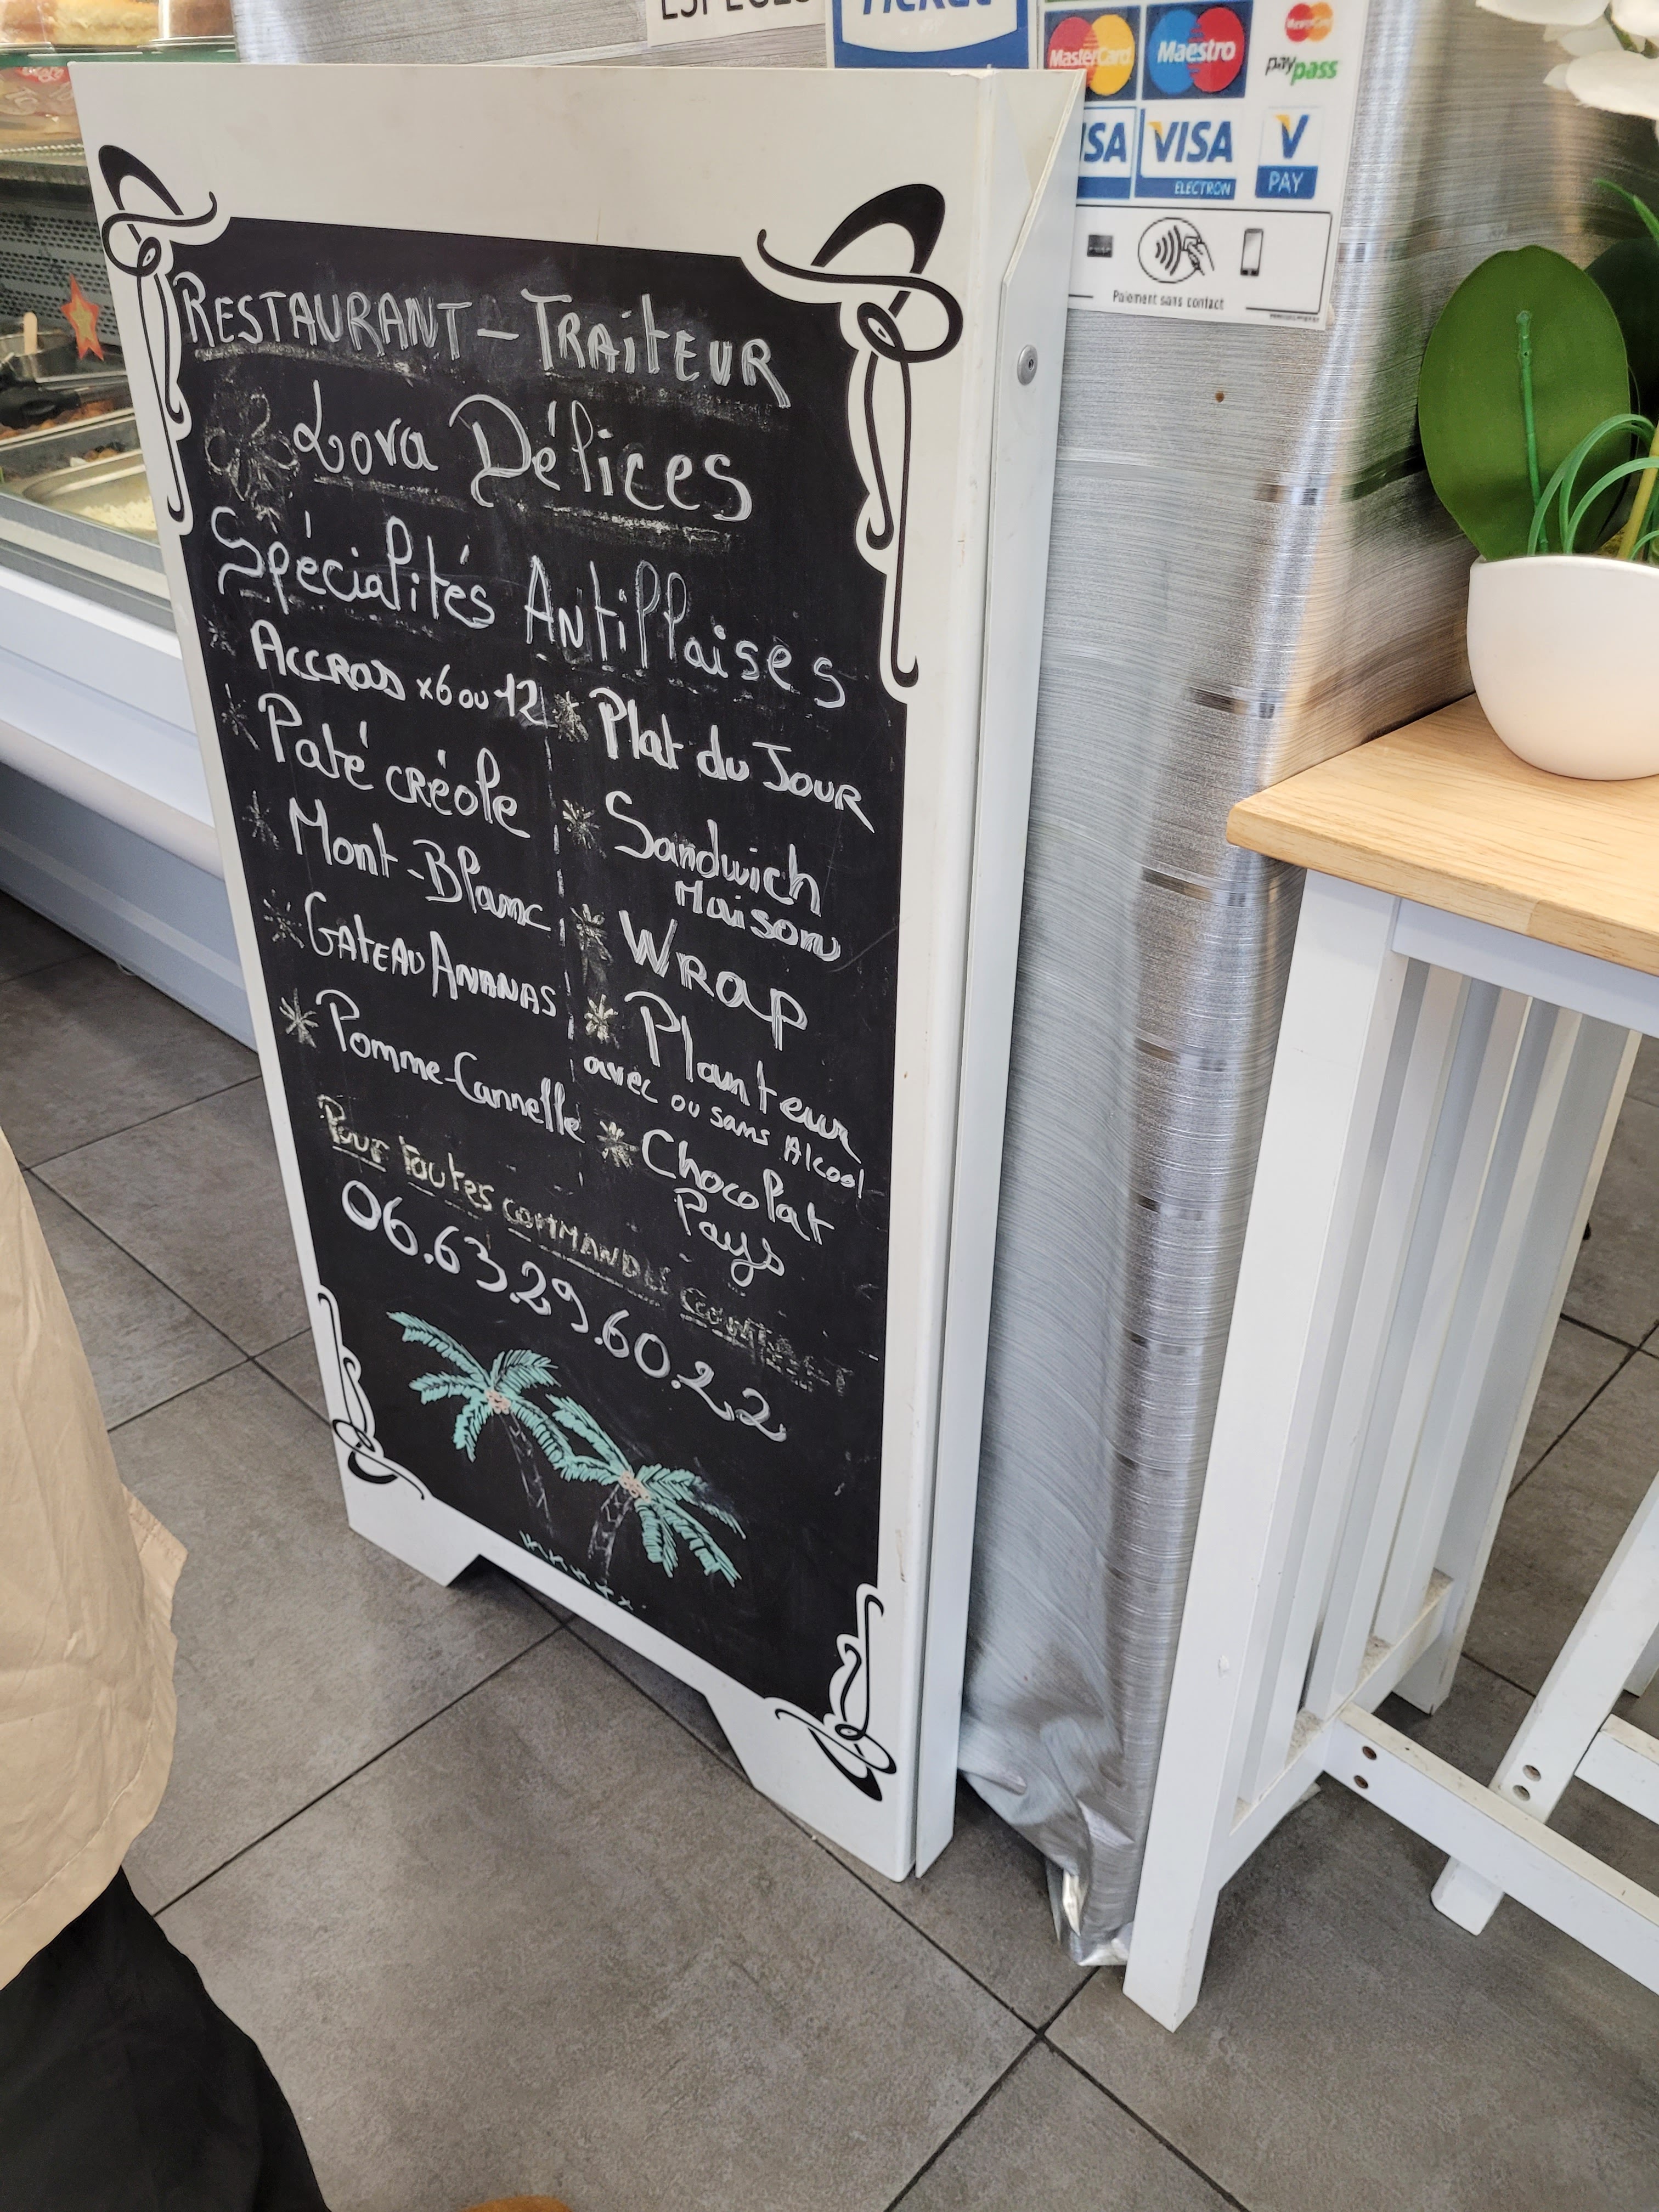 ESPECES
Ticket
MasterCard
Maestro
MasterCard
paypass
VISA
VISA
ELECTRON
V
PAY
Paiement sans contact
RESTAURANT - TRAiTEUR
Lova Délices
Spécialités Antillaises
ACCRAS x6 ou 12
Paté créole
Mont-Blanc
GATEAU ANANAS
Pomme-Cannelle
Plat du JOUR
Sandwich
Maison
WRap
Planteur
avec ou sans Alcool
Chocolat
Pays
Pour toutes COMMANDES
06.63.29.60.22